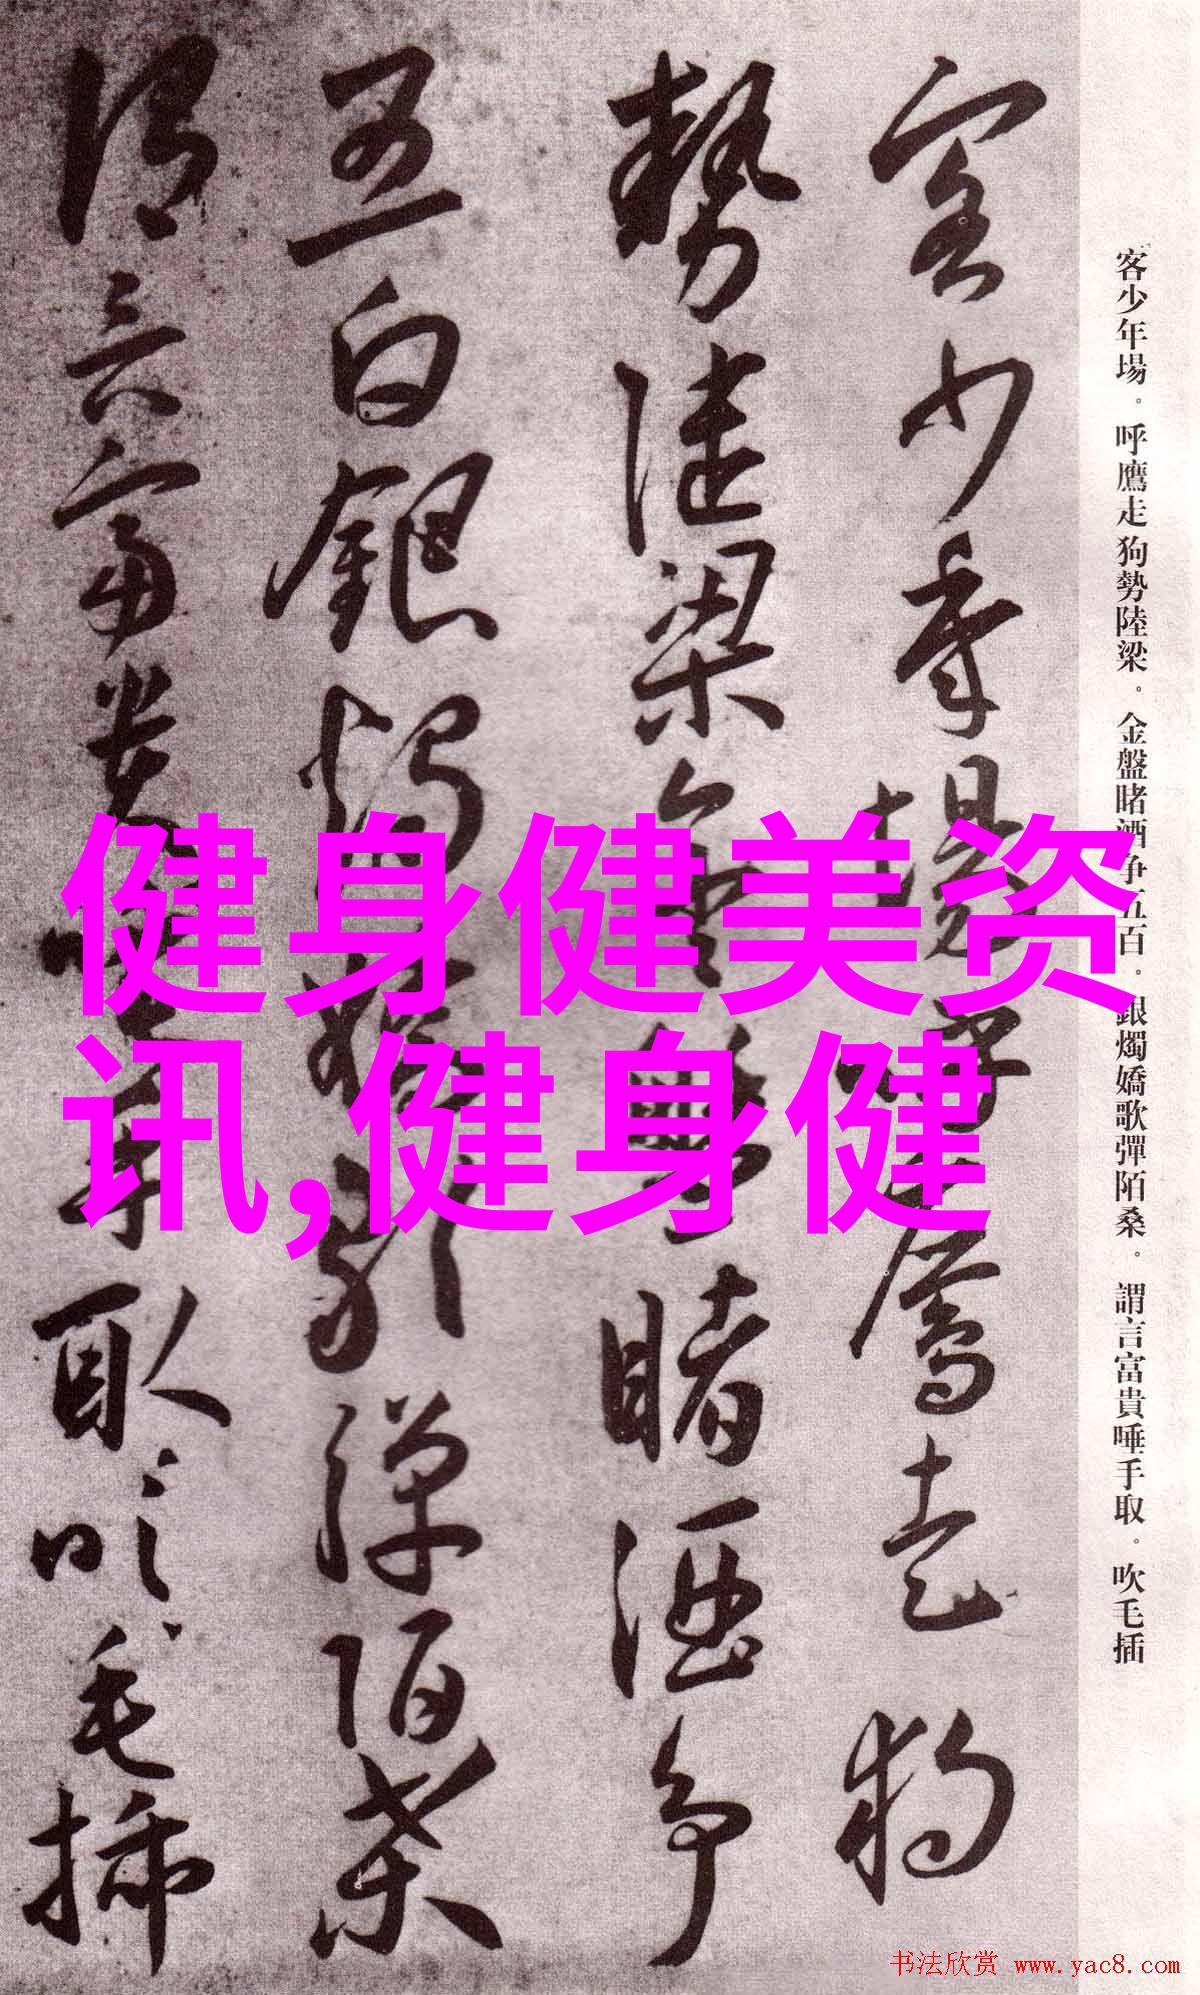 客少年場。呼鷹走狗勢陸梁。金盤睹酒争五百。銀燭嬌歌彈陌桑。謂言富貴唾手取。吹毛插
客少年場呼鷹走狗
勢陸梁金盤睹酒爭
五白銀燭嬌歌彈陌桑
謂言富貴唾手取吹毛插
健身健美资
讯,健身健
书法欣赏 www.yac8.com